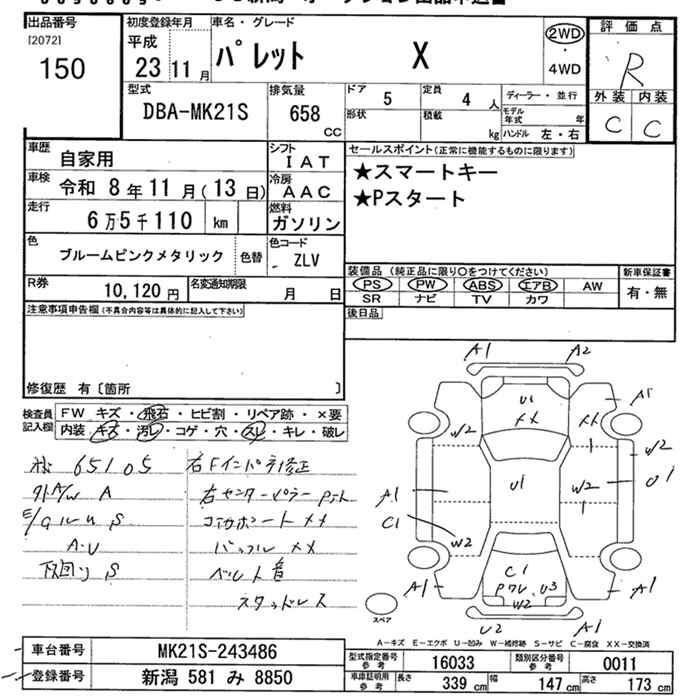 出品番号
[2072]
150
初度登録年月
平成
23 11月
車名・グレード
パレット X
2WD
・
4WD
評価点
R
外装 内装
C C
型式
DBA-MK21S
排気量
658
CC
ドア 5
定員 4 人
形状
積載 kg
ディーラー・並行
モデル年式 年
ハンドル 左・右
車歴
自家用
シフト
IAT
車検
令和 8年 11月(13日)
冷房
AAC
走行
6万5千110 km
燃料
ガソリン
色
ブルームピンクメタリック
色替
色コード
ZLV
R券
10,120円
名変通知期限
月 日
セールスポイント(正常に機能するものに限ります)
★スマートキー
★Pスタート
装備品(純正品に限り○をつけてください)
PS PW ABS エアB AW
SR ナビ TV カワ
新車保証書
有・無
後日品
注意事項申告欄(不具合内容等は具体的に記入して下さい)
修復歴 有〔箇所 〕
検査員
記入欄
FW キズ・飛石・ヒビ割・リペア跡・×要
内装・キズ・汚レ・コゲ・穴・スレ・キレ・破レ
65105
右Fインパネ修正
外A/W A
右センターピラー
E/gルーム S
コアサポート ××
A-U
バックパネル ××
下回り S
ベルト音
スタッドレス
A1 A2
U1
××
××
A1
W2
W2
U1
A1
U1
W2
C1
W2
C1
U3
W2
A1
A1
U2 A1
スペア
A-キズ E-エクボ U-凹み W-補修跡 S-サビ C-腐食 XX-交換済
車台番号
MK21S-243486
登録番号
新潟 581 み 8850
型式指定番号
参考
16033
類別区分番号
参考
0011
車庫証明用
参考
長さ 339 cm
幅 147 cm
高さ 173 cm